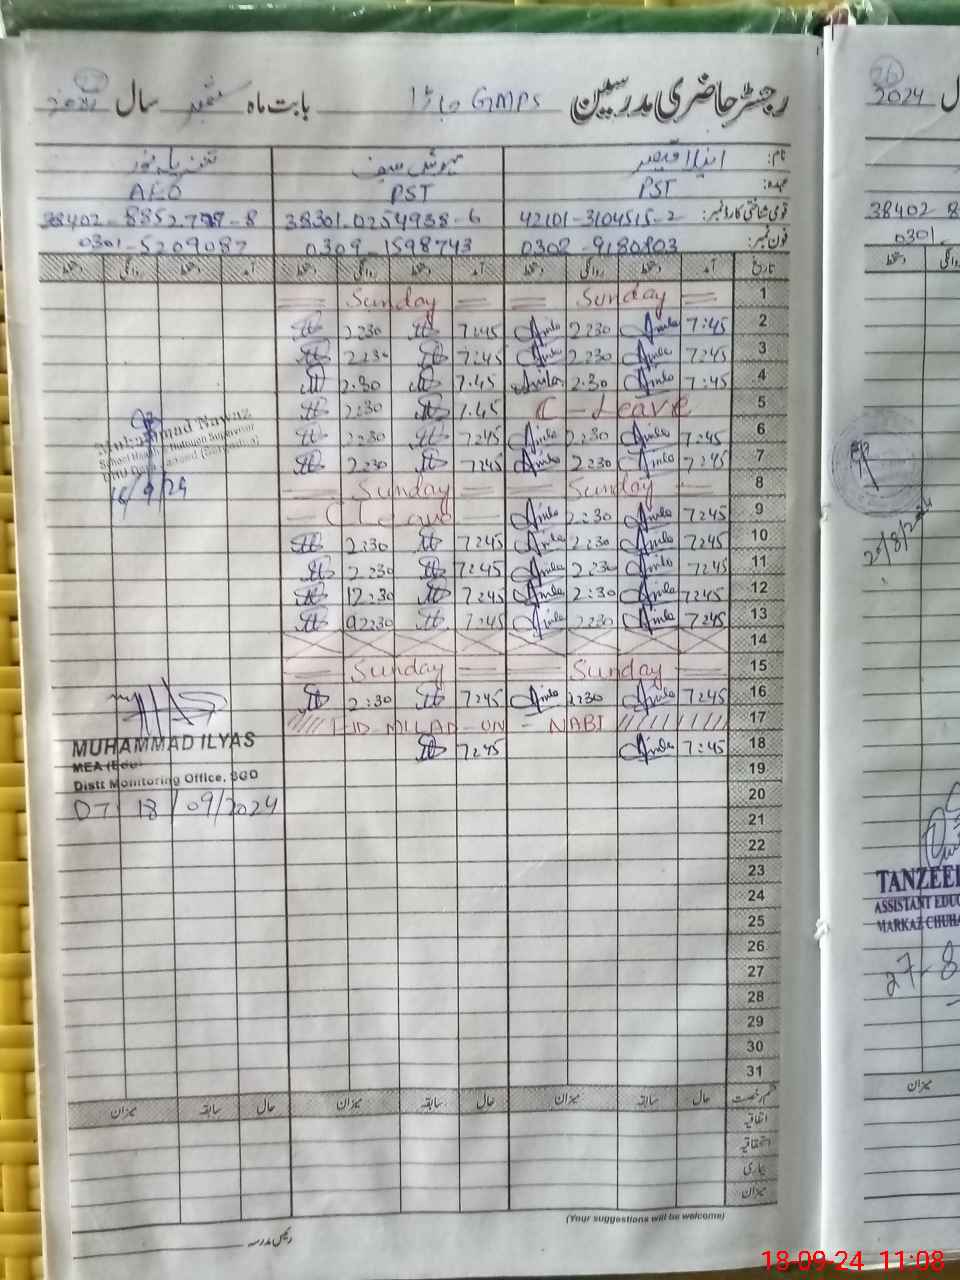 رجسٹر حاضری مدرسین GMPS جاڑا بابت ماہ ستمبر سال 2024
نام: انیلا قیصر
عہدہ: PST PST AEO
قومی شناختی کارڈ نمبر: 42101-3104515-2 38301-0254938-6
فون نمبر: 0302-9180803 0309-1598743 0301-5209087
تاریخ آمد دستخط روانگی دستخط آمد دستخط روانگی دستخط آمد دستخط روانگی دستخط
1 Sunday Sunday
2 7:45 Amla 2:30 Amla 7:45 2:30
3 7:45 Amla 2:30 Amla 7:45 2:30
4 7:45 Amla 2:30 Amla 7:45 2:30
5 C-Leave 7:45 2:30
6 7:45 Amla 2:30 Amla 7:45 2:30
7 7:45 Amla 2:30 Amla 7:45 2:30
8 Sunday Sunday
9 7:45 Amla 2:30 Amla C Leave
10 7:45 Amla 2:30 Amla 7:45 2:30
11 7:45 Amla 2:30 Amla 7:45 2:30
12 7:45 Amla 2:30 Amla 7:45 12:30
13 7:45 Amla 2:30 Amla 7:45 2:30
14
15 Sunday Sunday
16 7:45 Amla 2:30 Amla 7:45 2:30
17 EID-MILLAD-UN-NABI
18 7:45 Amla 7:45
19
20
21
22
23
24
25
26
27
28
29
30
31
قسم رخصت حال سابقہ میزان حال سابقہ میزان حال سابقہ میزان
اتفاقیہ
استحقاقیہ
بیماری
میزان
(Your suggestions will be welcome)
رئیس مدرسہ
Muhammad Nawaz
School Health & Nutrition Supervisor
16/9/24
MUHAMMAD ILYAS
MEA (Edu)
Distt Monitoring Office, SGD
DT 18/09/2024
26
2024
سال
38402-8
0301
دستخط
29/8/2024
TANZEE
ASSISTANT EDUC
MARKAZ CHUHA
27-8
میزان
18-09-24 11:08